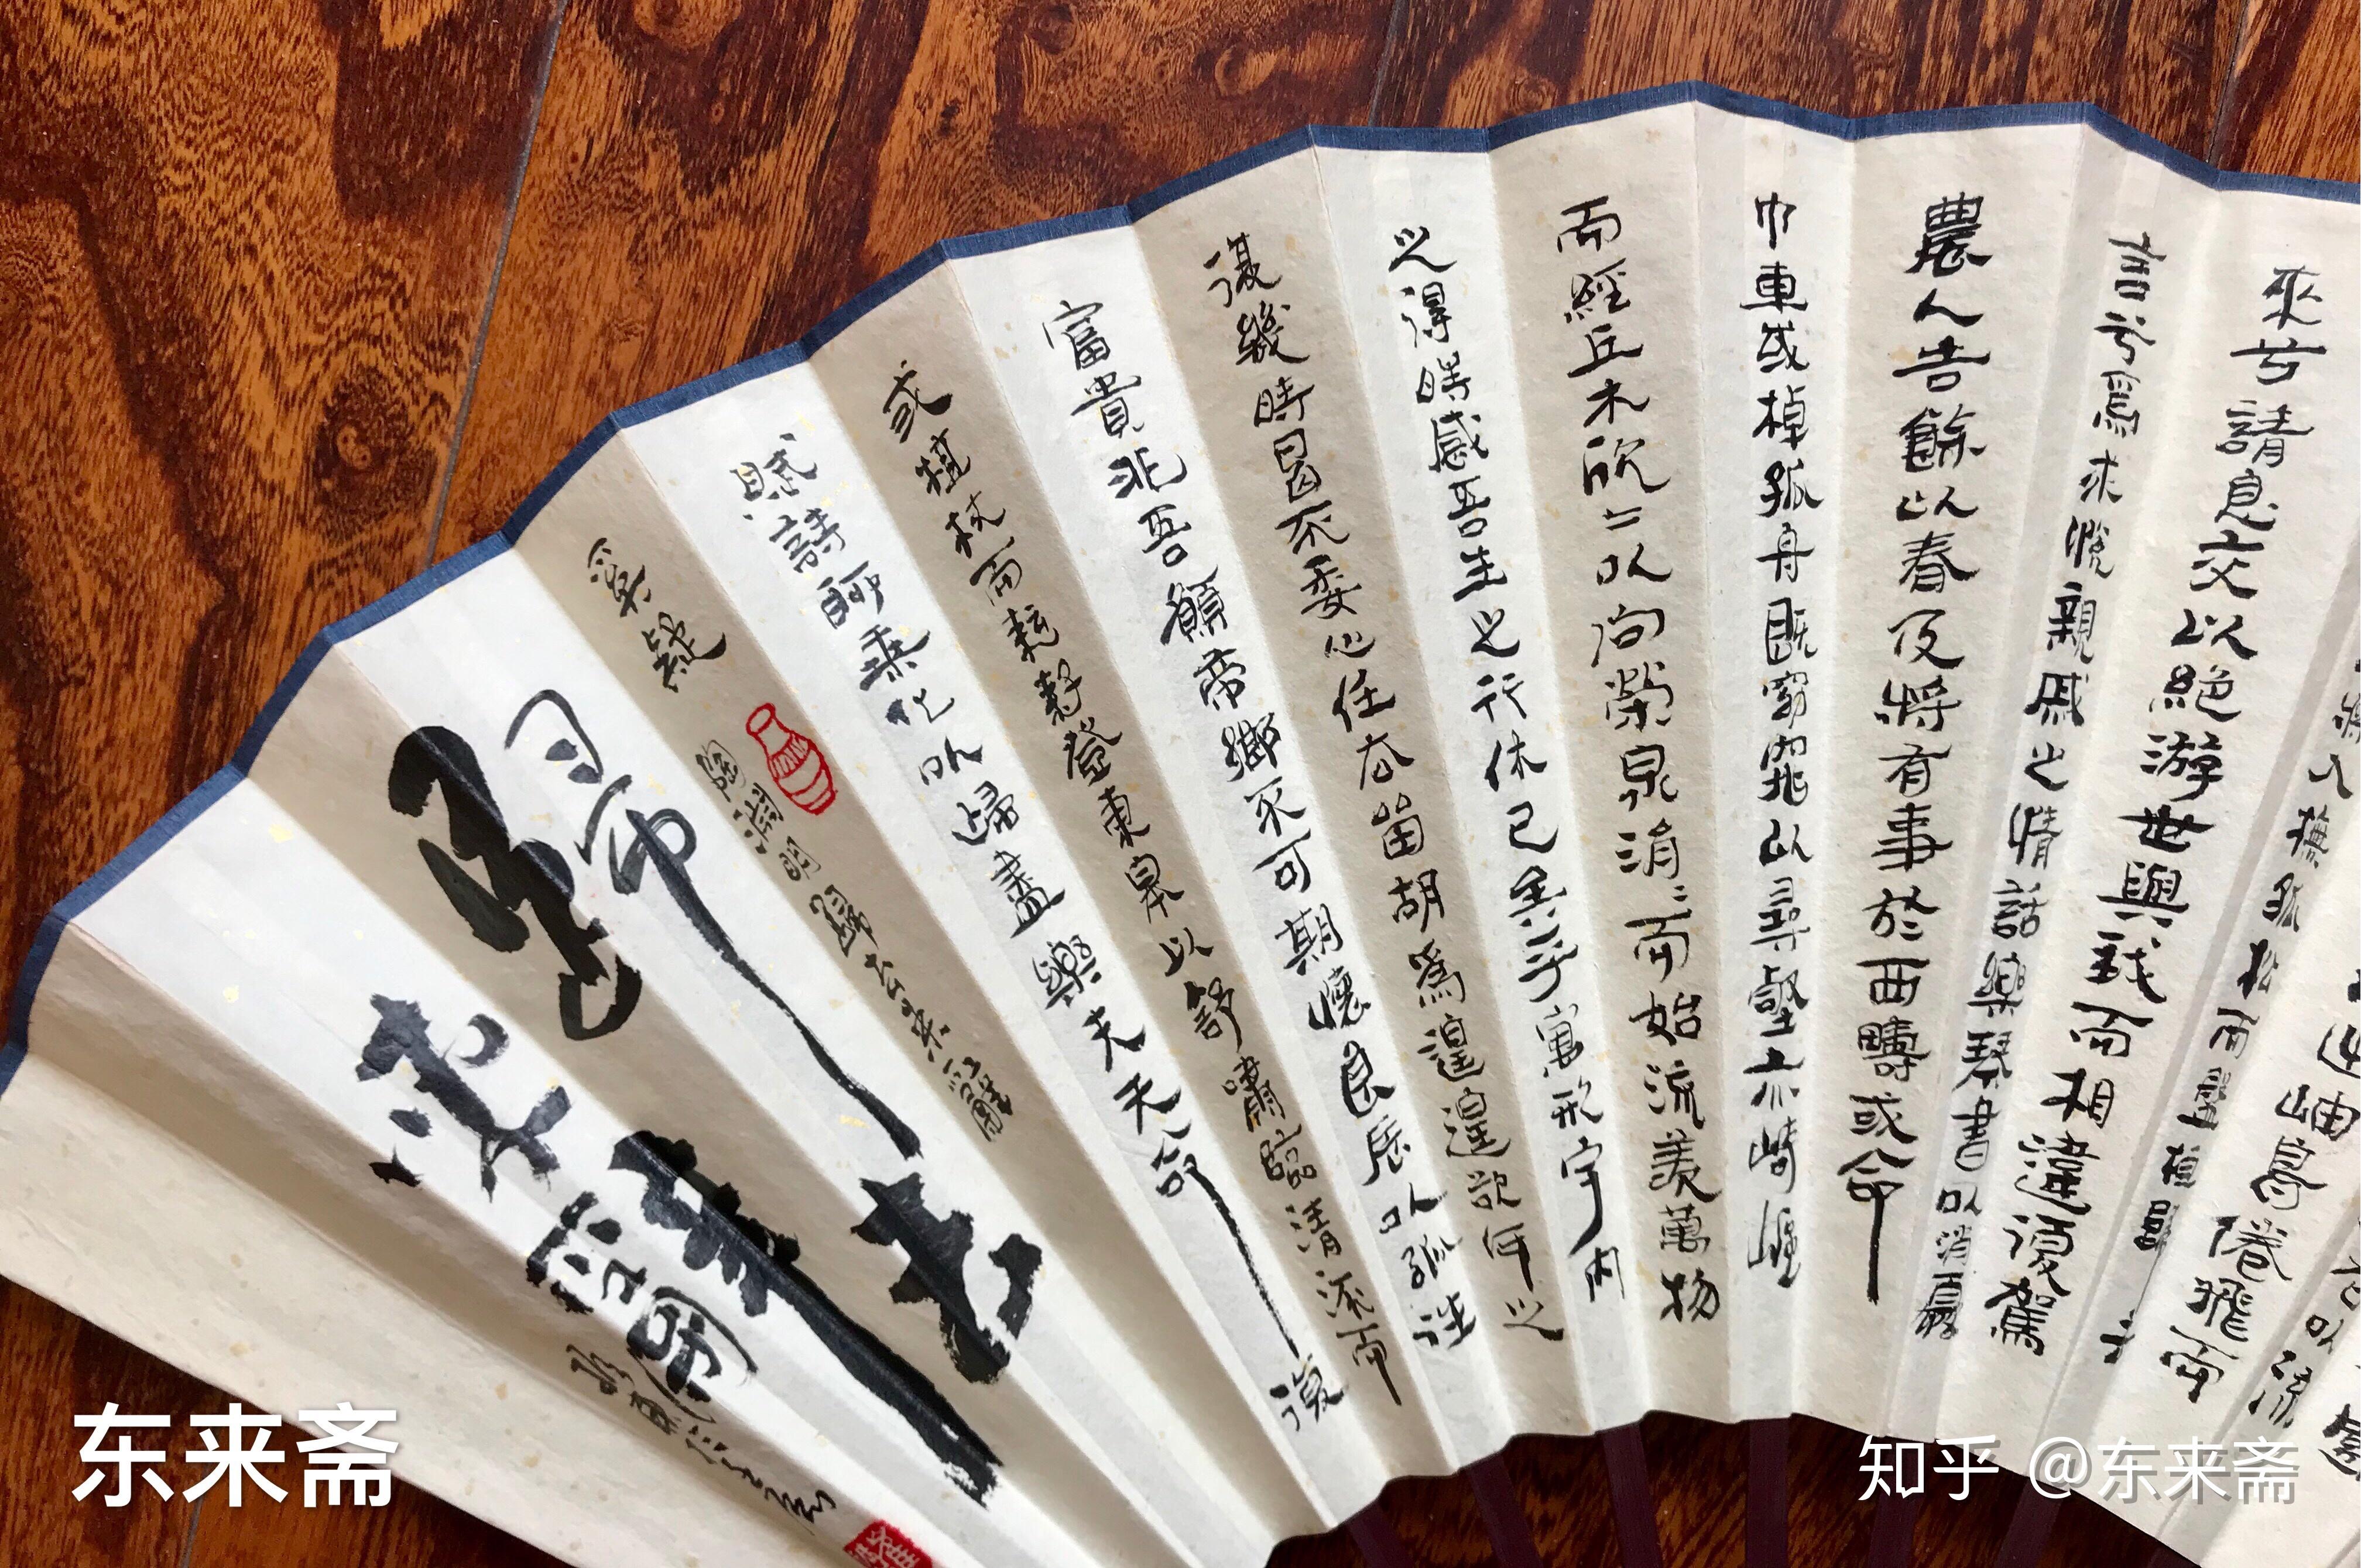 老以流
出岫鳥倦飛而
將入撫孤松而盤桓歸去
來兮請息交以絕游世與我而相違復駕
言兮焉求悅親戚之情話樂琴書以消憂
農人告餘以春及將有事於西疇或命
巾車或棹孤舟既窈窕以尋壑亦崎嶇
而經丘木欣二以向榮泉涓二而始流羨萬物
之得時感吾生之行休已矣乎寓形宇内
復幾時曷不委心任去留胡爲遑遑欲何之
富貴非吾願帝鄉不可期懷良辰以孤往
或植杖而耘耔登東皋以舒嘯臨清流而
賦詩聊乘化以歸盡樂夫天命復
奚疑
陶淵明歸去來兮辭
歸去
來兮
东来斋
知乎 @东来斋